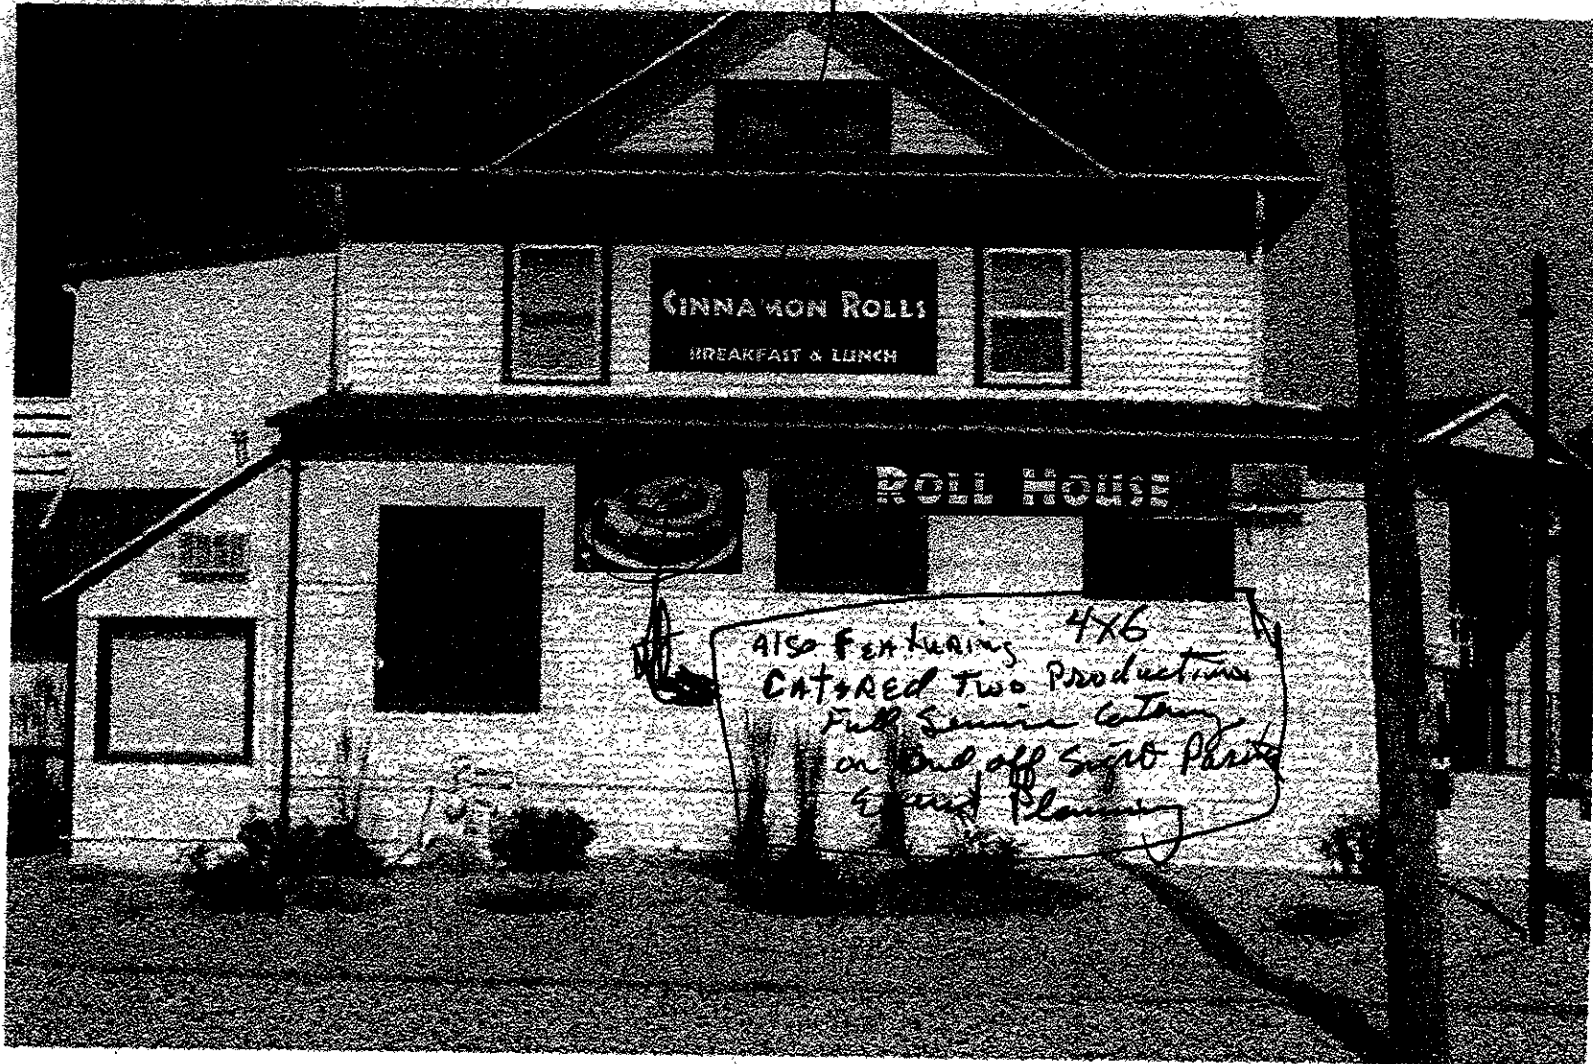 CINNAMON ROLLS
BREAKFAST & LUNCH
ROLL HOUSE
4x6
Also Featuring
CAtERED Two Productions
Full Service Catering
on and off Parts
Event Planning